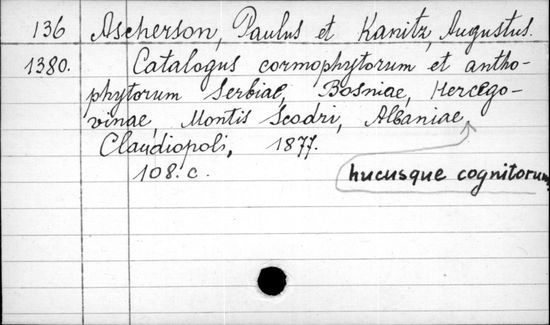 136 Ascherson, Paulus et Kanitz, Augustus.
1380. Catalogus cormophytorum et antho-
phytorum Serbiae, Bosniae, Hercego-
vinae, Montis Scodri, Albaniae.
Claudiopoli, 1877.
108. c.
hucusque cognitorum